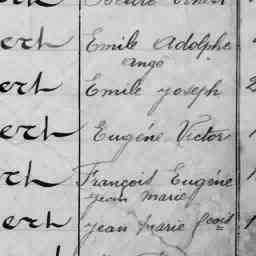 ert Emile Adolphe
Ange
ert Emile Joseph 2
ert Eugéne Victor
ert François Eugéne
Jean Marie
ert Jean Marie